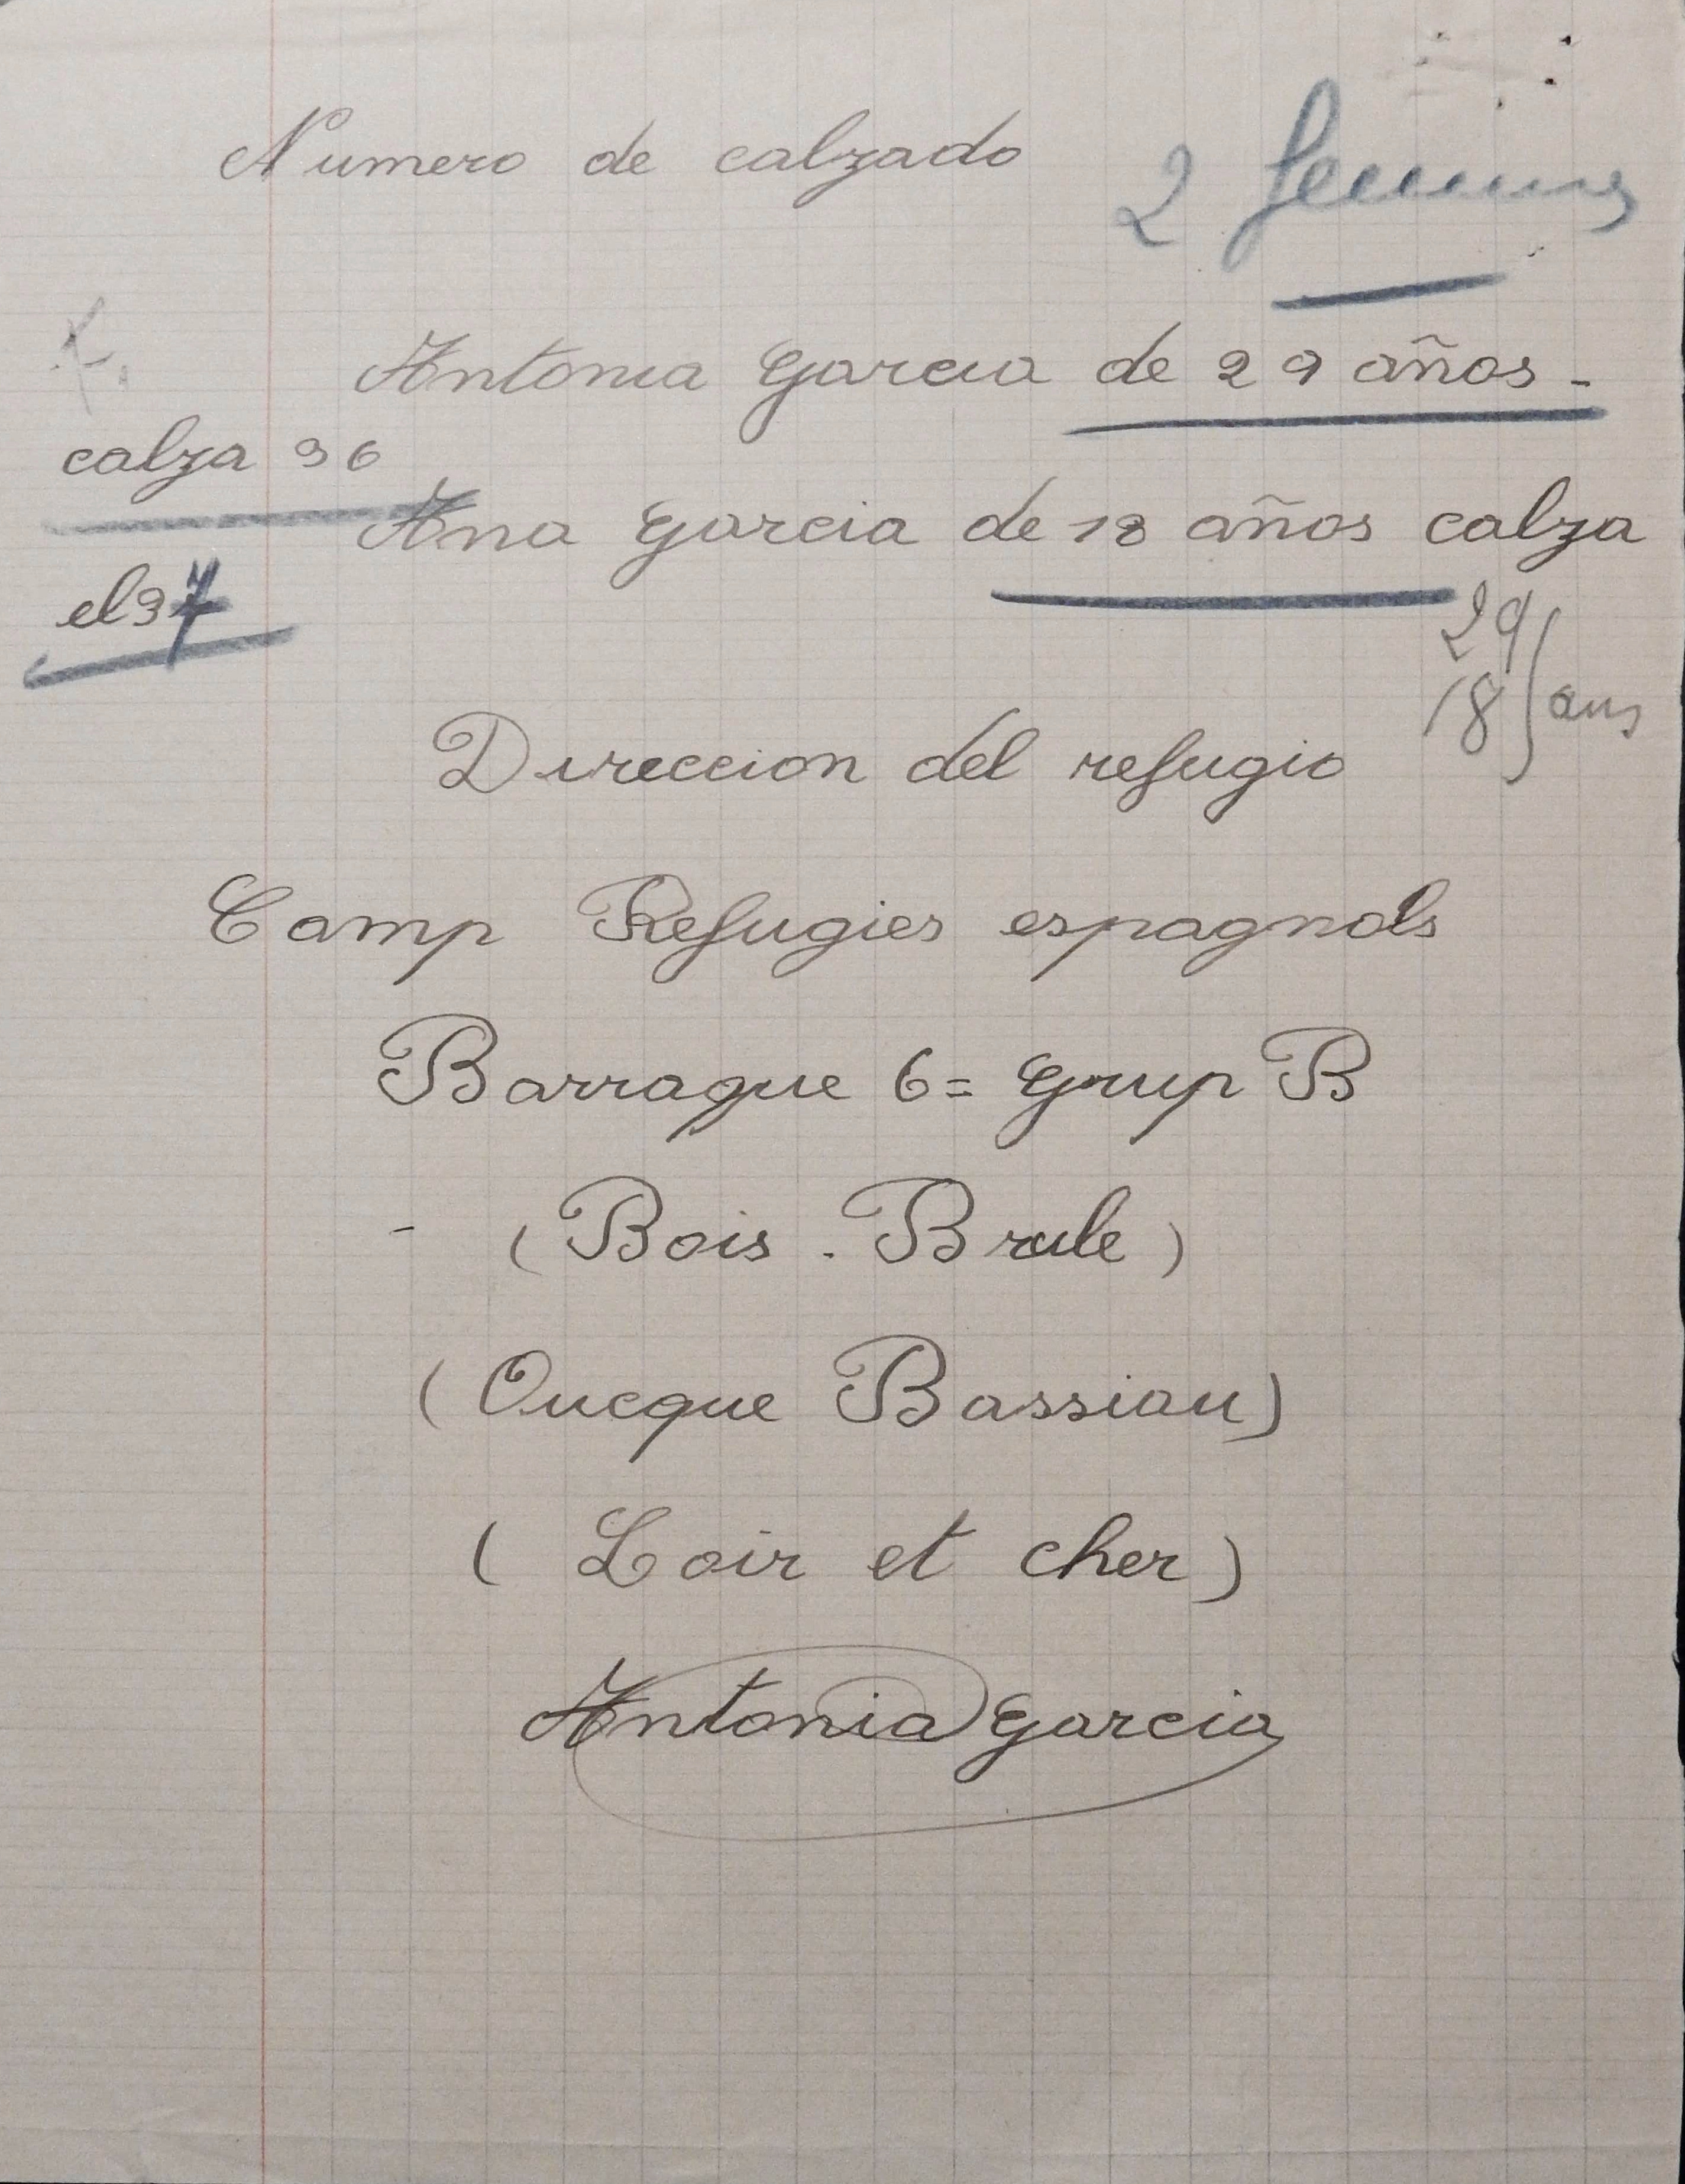 Numero de calzado
2 femmes
Antonia Garcia de 29 años -
calza 36
Ana Garcia de 18 años calza
el 37
29
18 } ans
Direccion del refugio
Camp Refugies espagnols
Barraque 6 = Grup B
- (Bois - Brule)
(Oucque Bassiau)
( Loir et cher )
Antonia Garcia